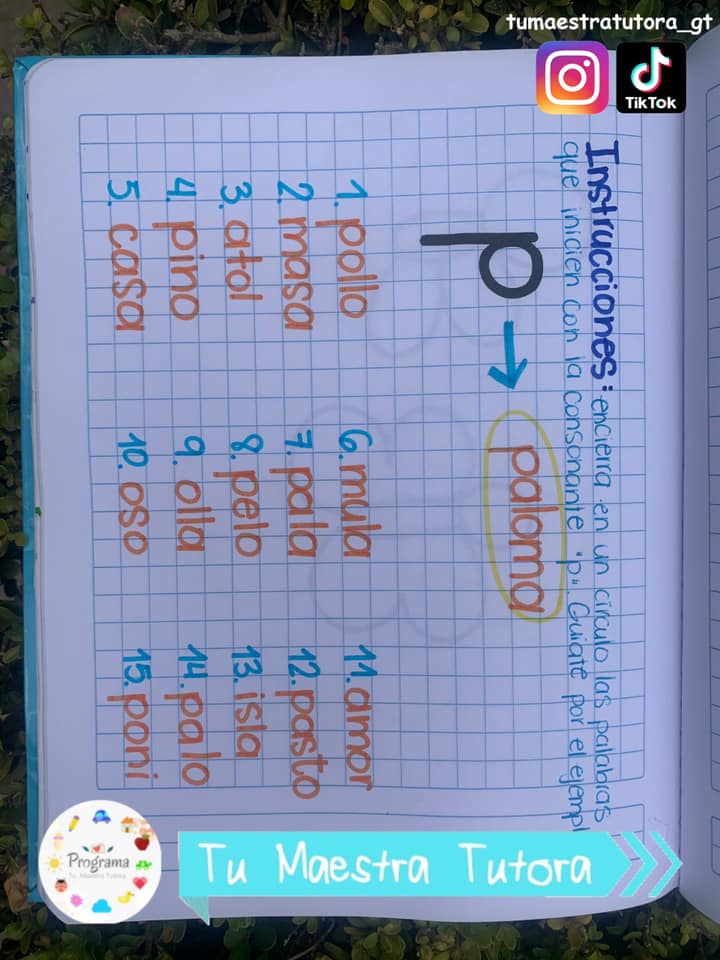 tumaestratutora_gt
TikTok
Instrucciones: encierra en un círculo las palabras
que inicien con la consonante "p". Guiate por el ejempl
p → paloma
1. pollo
2. masa
3. atol
4. pino
5. casa
6. mula
7. pala
8. pelo
9. olla
10. oso
11. amor
12. pasto
13. isla
14. palo
15. poni
Programa
Tu Maestra Tutora
Tu Maestra Tutora